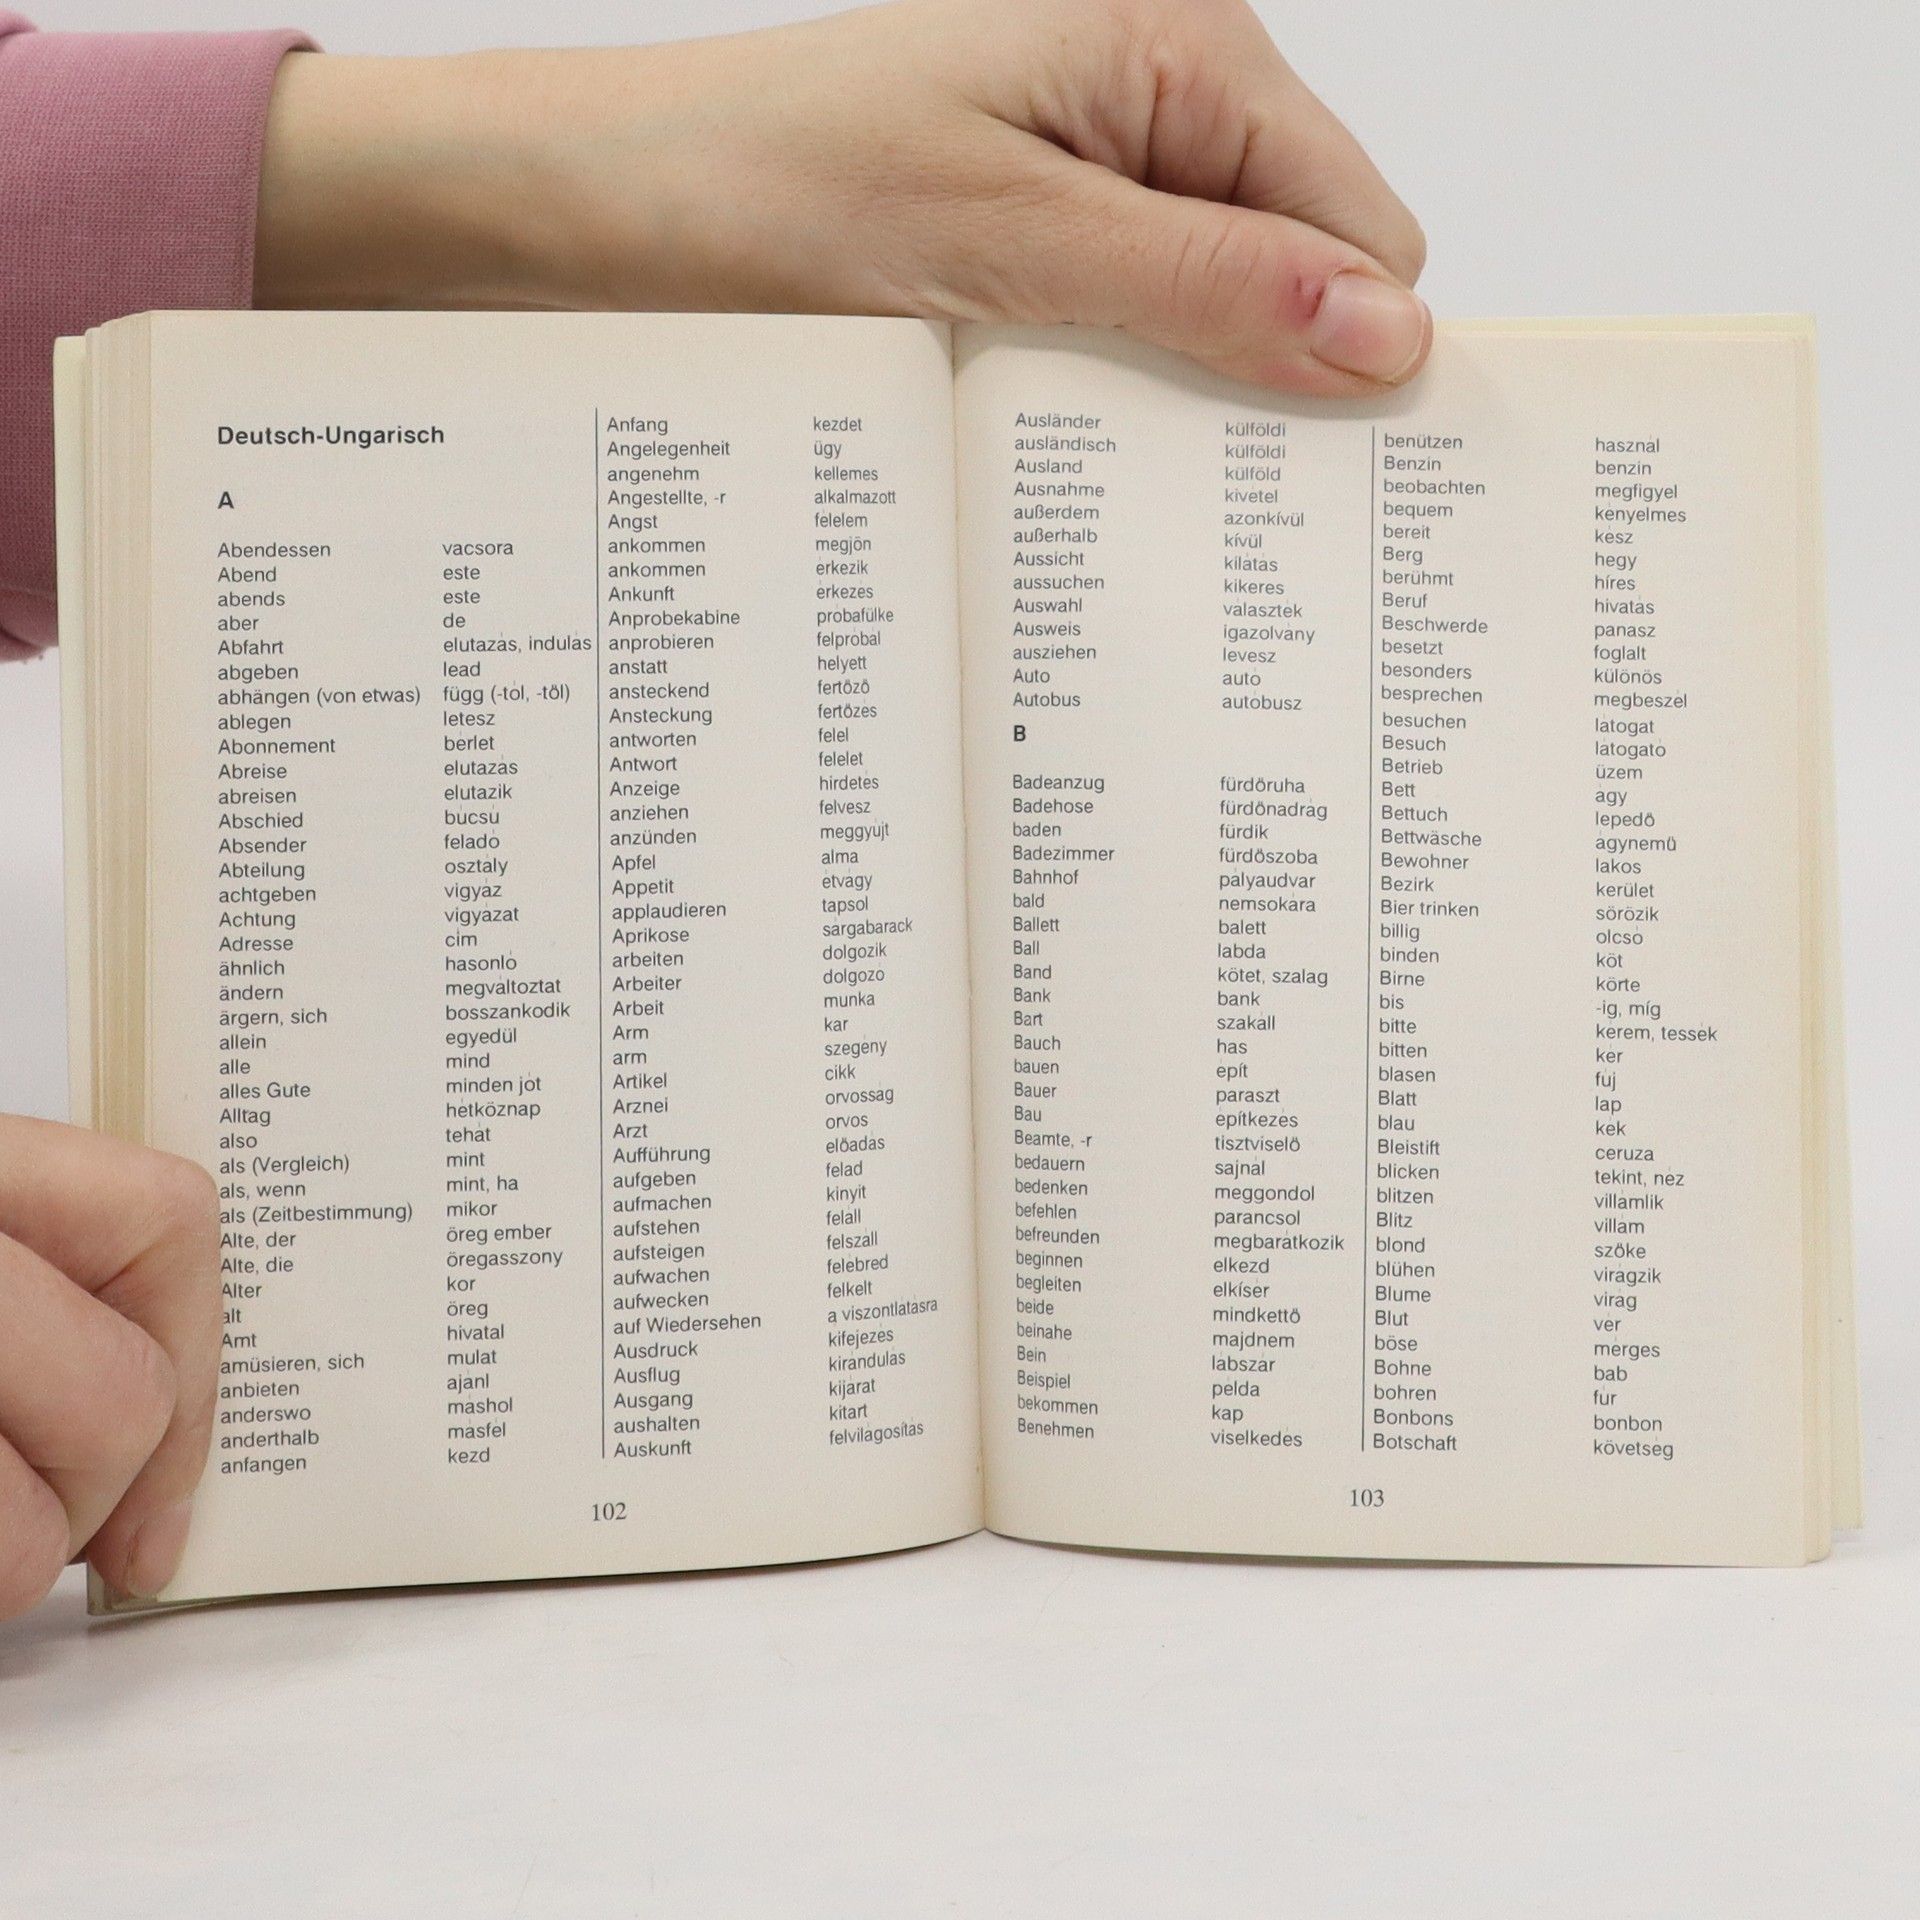 Deutsch-Ungarisch
A
Abendessen vacsora
Abend este
abends este
aber de
Abfahrt elutazás, indulás
abgeben lead
abhängen (von etwas) függ (-tól, -től)
ablegen letesz
Abonnement bérlet
Abreise elutazás
abreisen elutazik
Abschied búcsú
Absender feladó
Abteilung osztály
achtgeben vigyáz
Achtung vigyázat
Adresse cím
ähnlich hasonló
ändern megváltoztat
ärgern, sich bosszankodik
allein egyedül
alle mind
alles Gute minden jót
Alltag hétköznap
also tehát
als (Vergleich) mint
als, wenn mint, ha
als (Zeitbestimmung) mikor
Alte, der öreg ember
Alte, die öregasszony
Alter kor
alt öreg
Amt hivatal
amüsieren, sich mulat
anbieten ajánl
anderswo máshol
anderthalb másfél
anfangen kezd
Anfang kezdet
Angelegenheit ügy
angenehm kellemes
Angestellte, -r alkalmazott
Angst félelem
ankommen megjön
ankommen érkezik
Ankunft érkezés
Anprobekabine próbafülke
anprobieren felpróbál
anstatt helyett
ansteckend fertőző
Ansteckung fertőzés
antworten felel
Antwort felelet
Anzeige hirdetés
anziehen felvesz
anzünden meggyújt
Apfel alma
Appetit étvágy
applaudieren tapsol
Aprikose sárgabarack
arbeiten dolgozik
Arbeiter dolgozó
Arbeit munka
Arm kar
arm szegény
Artikel cikk
Arznei orvosság
Arzt orvos
Aufführung előadás
aufgeben felad
aufmachen kinyit
aufstehen feláll
aufsteigen felszáll
aufwachen felébred
aufwecken felkelt
auf Wiedersehen a viszontlátásra
Ausdruck kifejezés
Ausflug kirándulás
Ausgang kijárat
aushalten kitart
Auskunft felvilágosítás
102
Ausländer külföldi
ausländisch külföldi
Ausland külföld
Ausnahme kivétel
außerdem azonkívül
außerhalb kívül
Aussicht kilátás
aussuchen kikeres
Auswahl választék
Ausweis igazolvány
ausziehen levesz
Auto autó
Autobus autóbusz
B
Badeanzug fürdőruha
Badehose fürdőnadrág
baden fürdik
Badezimmer fürdőszoba
Bahnhof pályaudvar
bald nemsokára
Ballett balett
Ball labda
Band kötet, szalag
Bank bank
Bart szakáll
Bauch has
bauen épít
Bauer paraszt
Bau építkezés
Beamte, -r tisztviselő
bedauern sajnál
bedenken meggondol
befehlen parancsol
befreunden megbarátkozik
beginnen elkezd
begleiten elkísér
beide mindkettő
beinahe majdnem
Bein lábszár
Beispiel példa
bekommen kap
Benehmen viselkedés
benützen használ
Benzin benzin
beobachten megfigyel
bequem kényelmes
bereit kész
Berg hegy
berühmt híres
Beruf hivatás
Beschwerde panasz
besetzt foglalt
besonders különös
besprechen megbeszél
besuchen látogat
Besuch látogató
Betrieb üzem
Bett ágy
Bettuch lepedő
Bettwäsche ágynemű
Bewohner lakos
Bezirk kerület
Bier trinken sörözik
billig olcsó
binden köt
Birne körte
bis -ig, míg
bitte kérem, tessék
bitten kér
blasen fúj
Blatt lap
blau kék
Bleistift ceruza
blicken tekint, néz
blitzen villámlik
Blitz villám
blond szőke
blühen virágzik
Blume virág
Blut vér
böse mérges
Bohne bab
bohren fúr
Bonbons bonbon
Botschaft követség
103